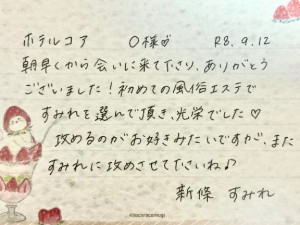 ホテルコア 〇様♡ R8.9.12
朝早くから会いに来て下さり、ありがとう
ございました！初めての風俗エステで
すみれを選んで頂き、光栄でした♡
攻めるのがお好きみたいですが、また
すみれに攻めさせて下さいね♪
新條 すみれ